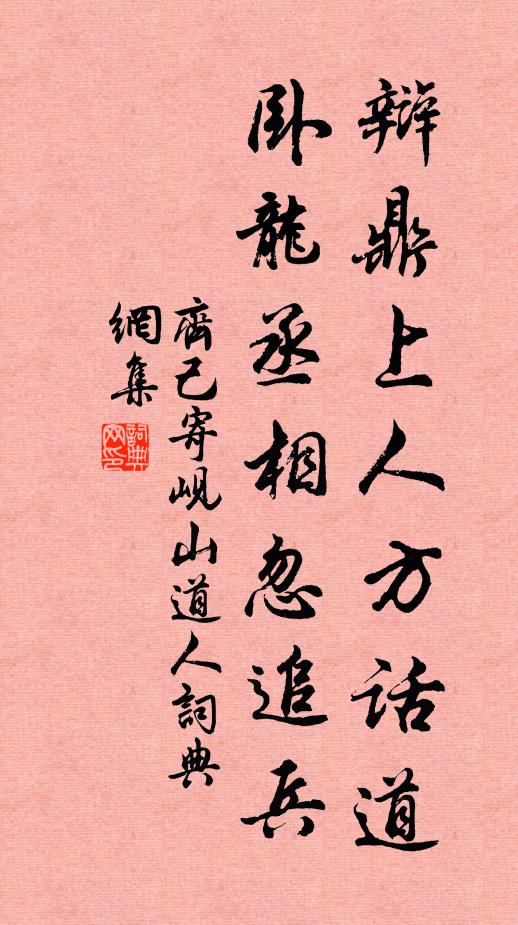 辯鼎上人方話道
臥龍丞相忽追兵
齊己寄峴山道人詞典
網集
詞典网印